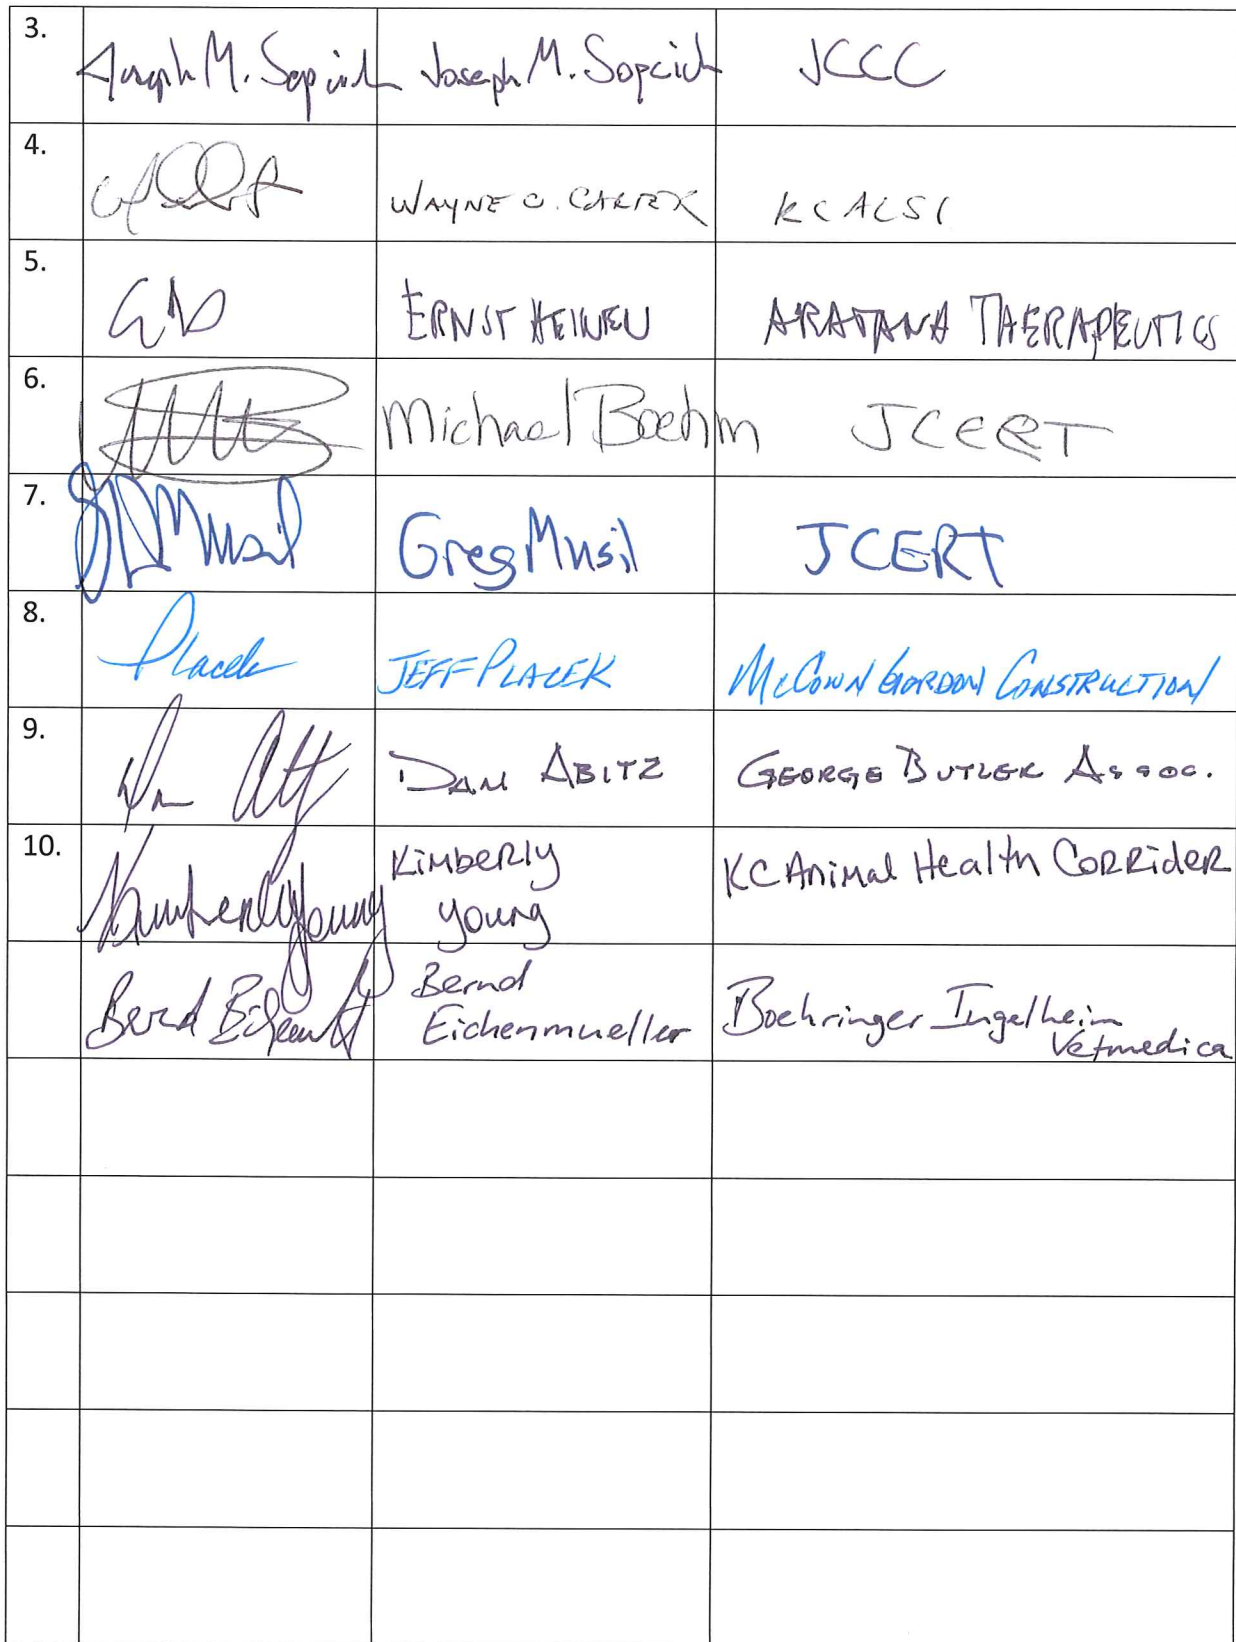 3. Joseph M. Sopcich Joseph M. Sopcich JCCC
4. WAYNE O. CARTER KCALSI
5. ERNST HEINEN ARATANA THERAPEUTICS
6. Michael Boehm JCERT
7. Musil Greg Musil JCERT
8. Placek JEFF PLACEK McCOWN GORDON CONSTRUCTION
9. DAN ABITZ GEORGE BUTLER ASSOC.
10. Kimberly Young Kimberly KC Animal Health CORRider
young
Bernd
Eichenmueller Boehringer Ingelheim
Vetmedica